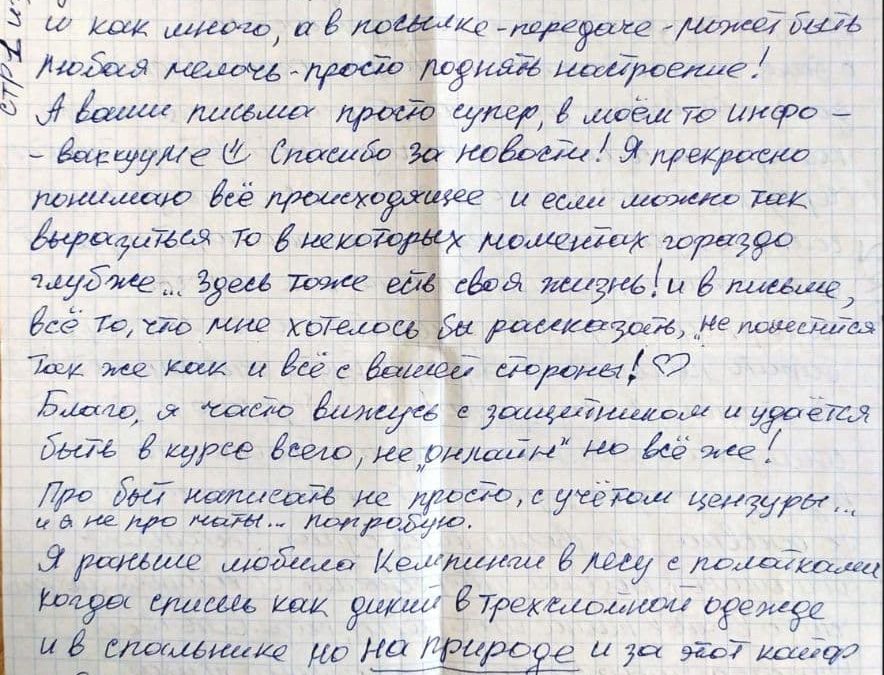 стр1 из
и как много, а в посылке-передаче - может быть
любая мелочь - просто поднять настроение!
А ваши письма просто супер, в моём то инфо -
- ваккууме Спасибо за новости! Я прекрасно
понимаю всё происходящее и если можно так
выразиться то в некоторых моментах гораздо
глубже... Здесь тоже есть своя жизнь! и в письме,
всё то, что мне хотелось бы рассказать, не поместится
так же как и всё с вашей стороны! ♡
Благо, я часто вижусь с защитником и удаётся
быть в курсе всего, не „онлайн" но всё же!
Про быт написать не просто, с учётом цензуры...
и я не про маты... попробую.
Я раньше любила Кемпинги в лесу с палатками
когда спишь как дикий в трехслойной одежде
и в спальнике но на природе и за этот кайф